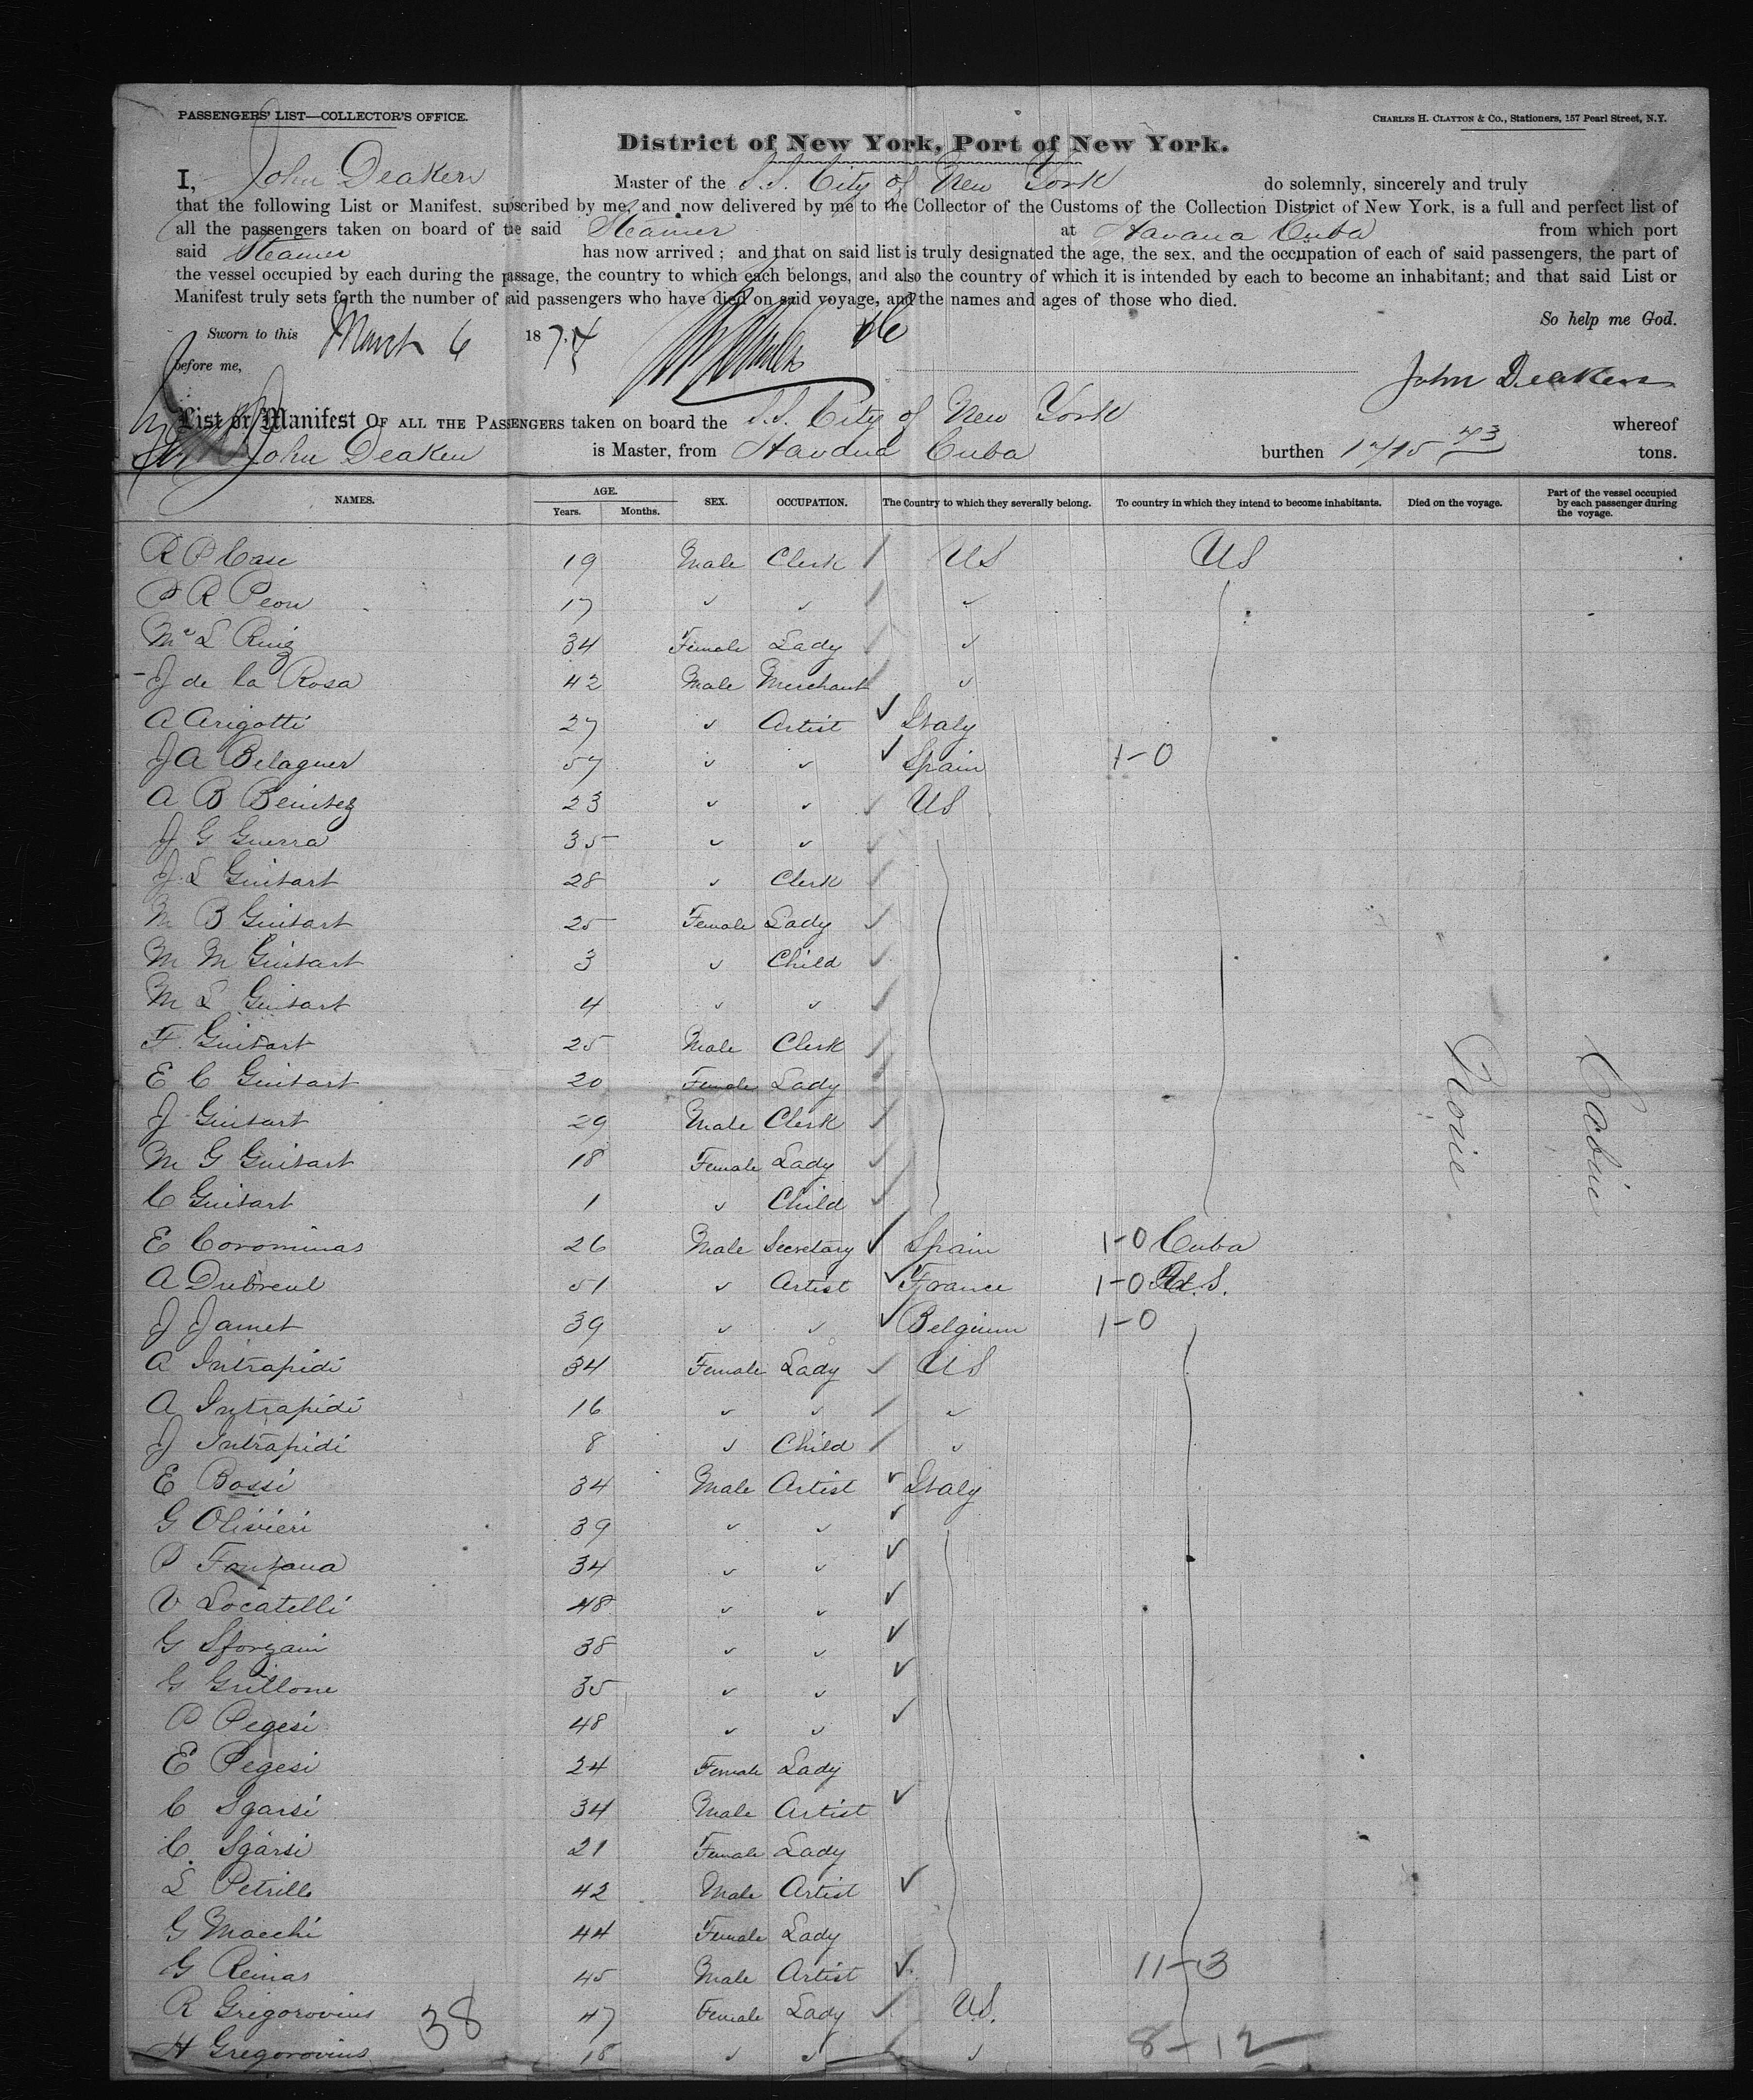 PASSENGERS' LIST—COLLECTOR'S OFFICE.
CHARLES H. CLAYTON & CO., Stationers, 157 Pearl Street, N.Y.
District of New York, Port of New York.
I, John Deaken Master of the S.S. City of New York do solemnly, sincerely and truly
that the following List or Manifest, subscribed by me, and now delivered by me to the Collector of the Customs of the Collection District of New York, is a full and perfect list of
all the passengers taken on board of the said Steamer at Havana Cuba from which port
said Steamer has now arrived; and that on said list is truly designated the age, the sex, and the occupation of each of said passengers, the part of
the vessel occupied by each during the passage, the country to which each belongs, and also the country of which it is intended by each to become an inhabitant; and that said List or
Manifest truly sets forth the number of said passengers who have died on said voyage, and the names and ages of those who died.
So help me God.
Sworn to this March 6 1874
before me,
John Deaken
List or Manifest OF ALL THE PASSENGERS taken on board the S.S. City of New York whereof
John Deaken is Master, from Havana Cuba burthen 1715 73 tons.
NAMES. AGE. Years. Months. SEX. OCCUPATION. The Country to which they severally belong. To country in which they intend to become inhabitants. Died on the voyage. Part of the vessel occupied by each passenger during the voyage.
R P Case 19 Male Clerk / US US
P R Peon 17 ✓ ✓ / ✓
L Ruiz 34 Female Lady / ✓
J de la Rosa 42 Male Merchant / ✓
A Arigotti 27 ✓ Artist ✓ Italy
J A Belaguer 57 ✓ ✓ ✓ Spain 1-0
A B Benitez 23 ✓ ✓ ✓ US
J G Guerra 35 ✓ ✓ ✓
J L Guitart 28 ✓ Clerk ✓
M B Guitart 25 Female Lady ✓
M M Guitart 3 ✓ Child ✓
M L Guitart 4 ✓ ✓ ✓
F. Guitart 25 Male Clerk /
E C Guitart 20 Female Lady /
J Guitart 29 Male Clerk /
M G Guitart 18 Female Lady ✓
C Guitart 1 ✓ Child ✓
E Corominas 26 Male Secretary ✓ Spain 1-0 Cuba
A Dubreul 51 ✓ Artist ✓ France 1-0 U.S.
J Jamet 39 ✓ ✓ ✓ Belgium 1-0
A Intrapidi 34 Female Lady ✓ US
A Intrapidi 16 ✓ ✓ / ✓
J Intrapidi 8 ✓ Child / ✓
E Bossi 34 Male Artist ✓ Italy
G Olivieri 39 ✓ ✓ ✓
P Fontana 34 ✓ ✓ ✓
V Locatelli 48 ✓ ✓ ✓
G Sforzani 38 ✓ ✓ ✓
G Grillone 35 ✓ ✓ ✓
P Pegesi 48 ✓ ✓ ✓
E Pegesi 24 Female Lady
C Sgarsi 34 Male Artist ✓
C. Sgarsi 21 Female Lady
L Petrillo 42 Male Artist ✓
G Macchi 44 Female Lady
G Reinas 45 Male Artist ✓ 11-3
R Grigorovius 47 Female Lady ✓ U.S.
H Gregorovius 18 ✓ ✓ ✓ 8-12
38
None
Cabin